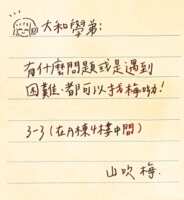 大和學弟：
有什麼問題或是遇到
困難，都可以找梅呦！
3-3（在A棟4樓中間）
山吹 梅．